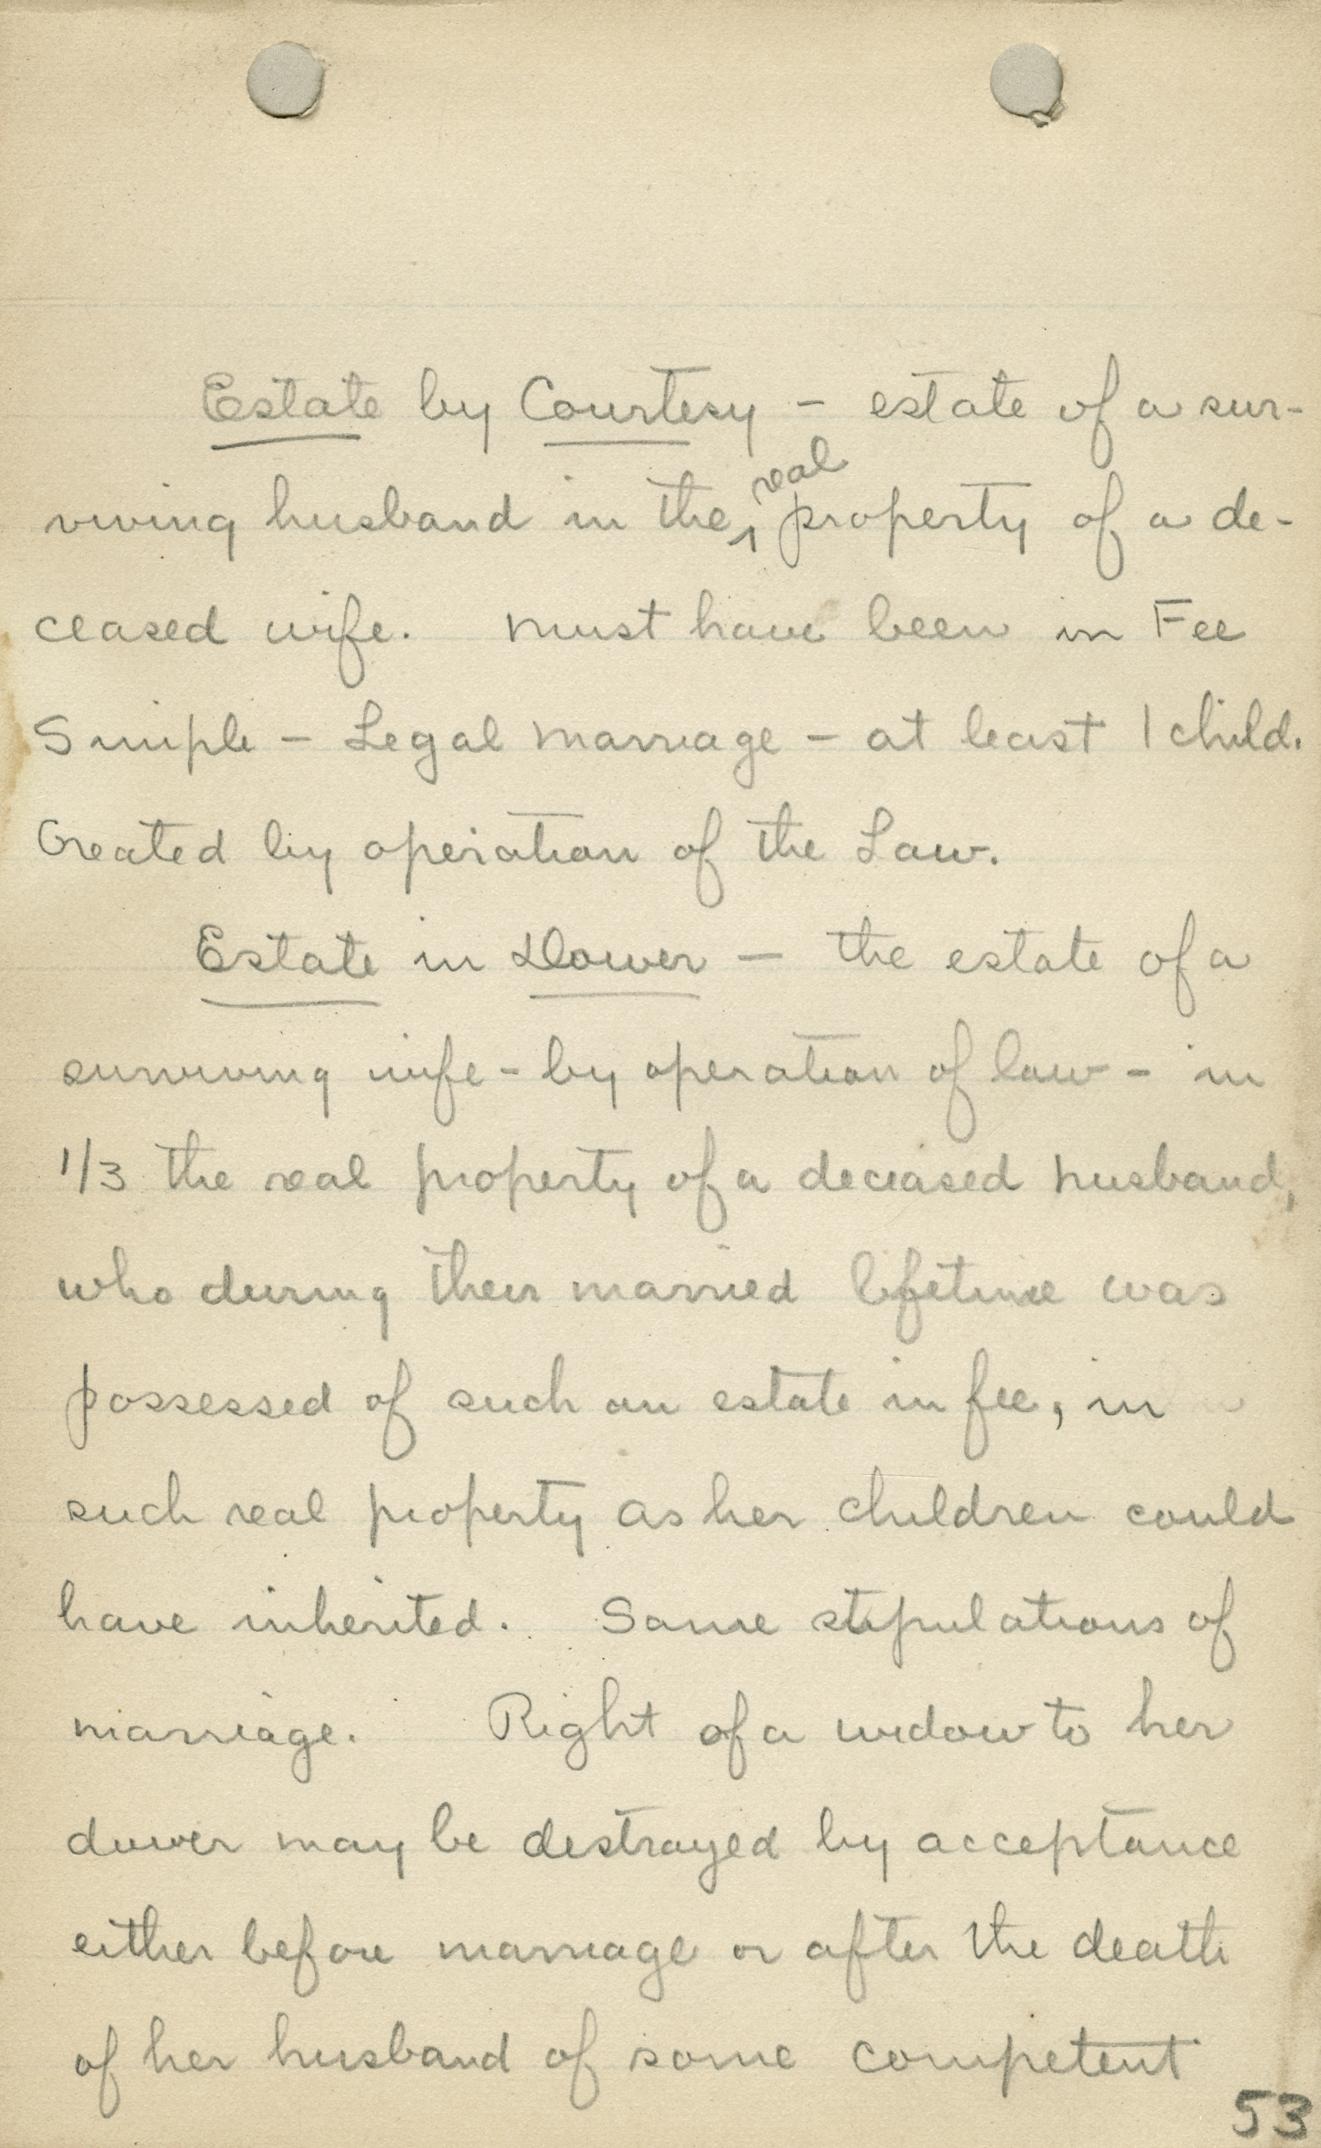 Estate by Courtesy - estate of a sur-
viving husband in the real property of a de-
ceased wife. Must have been in Fee
Simple - Legal marriage - at least 1 child.
Created by operation of the Law.
Estate in Dower - the estate of a
surviving wife - by operation of law - in
1/3 the real property of a deceased husband,
who during their married lifetime was
possessed of such an estate in fee, in
such real property as her children could
have inherited. Same stipulations of
marriage. Right of a widow to her
dower may be destroyed by acceptance
either before marriage or after the death
of her husband of some competent
53